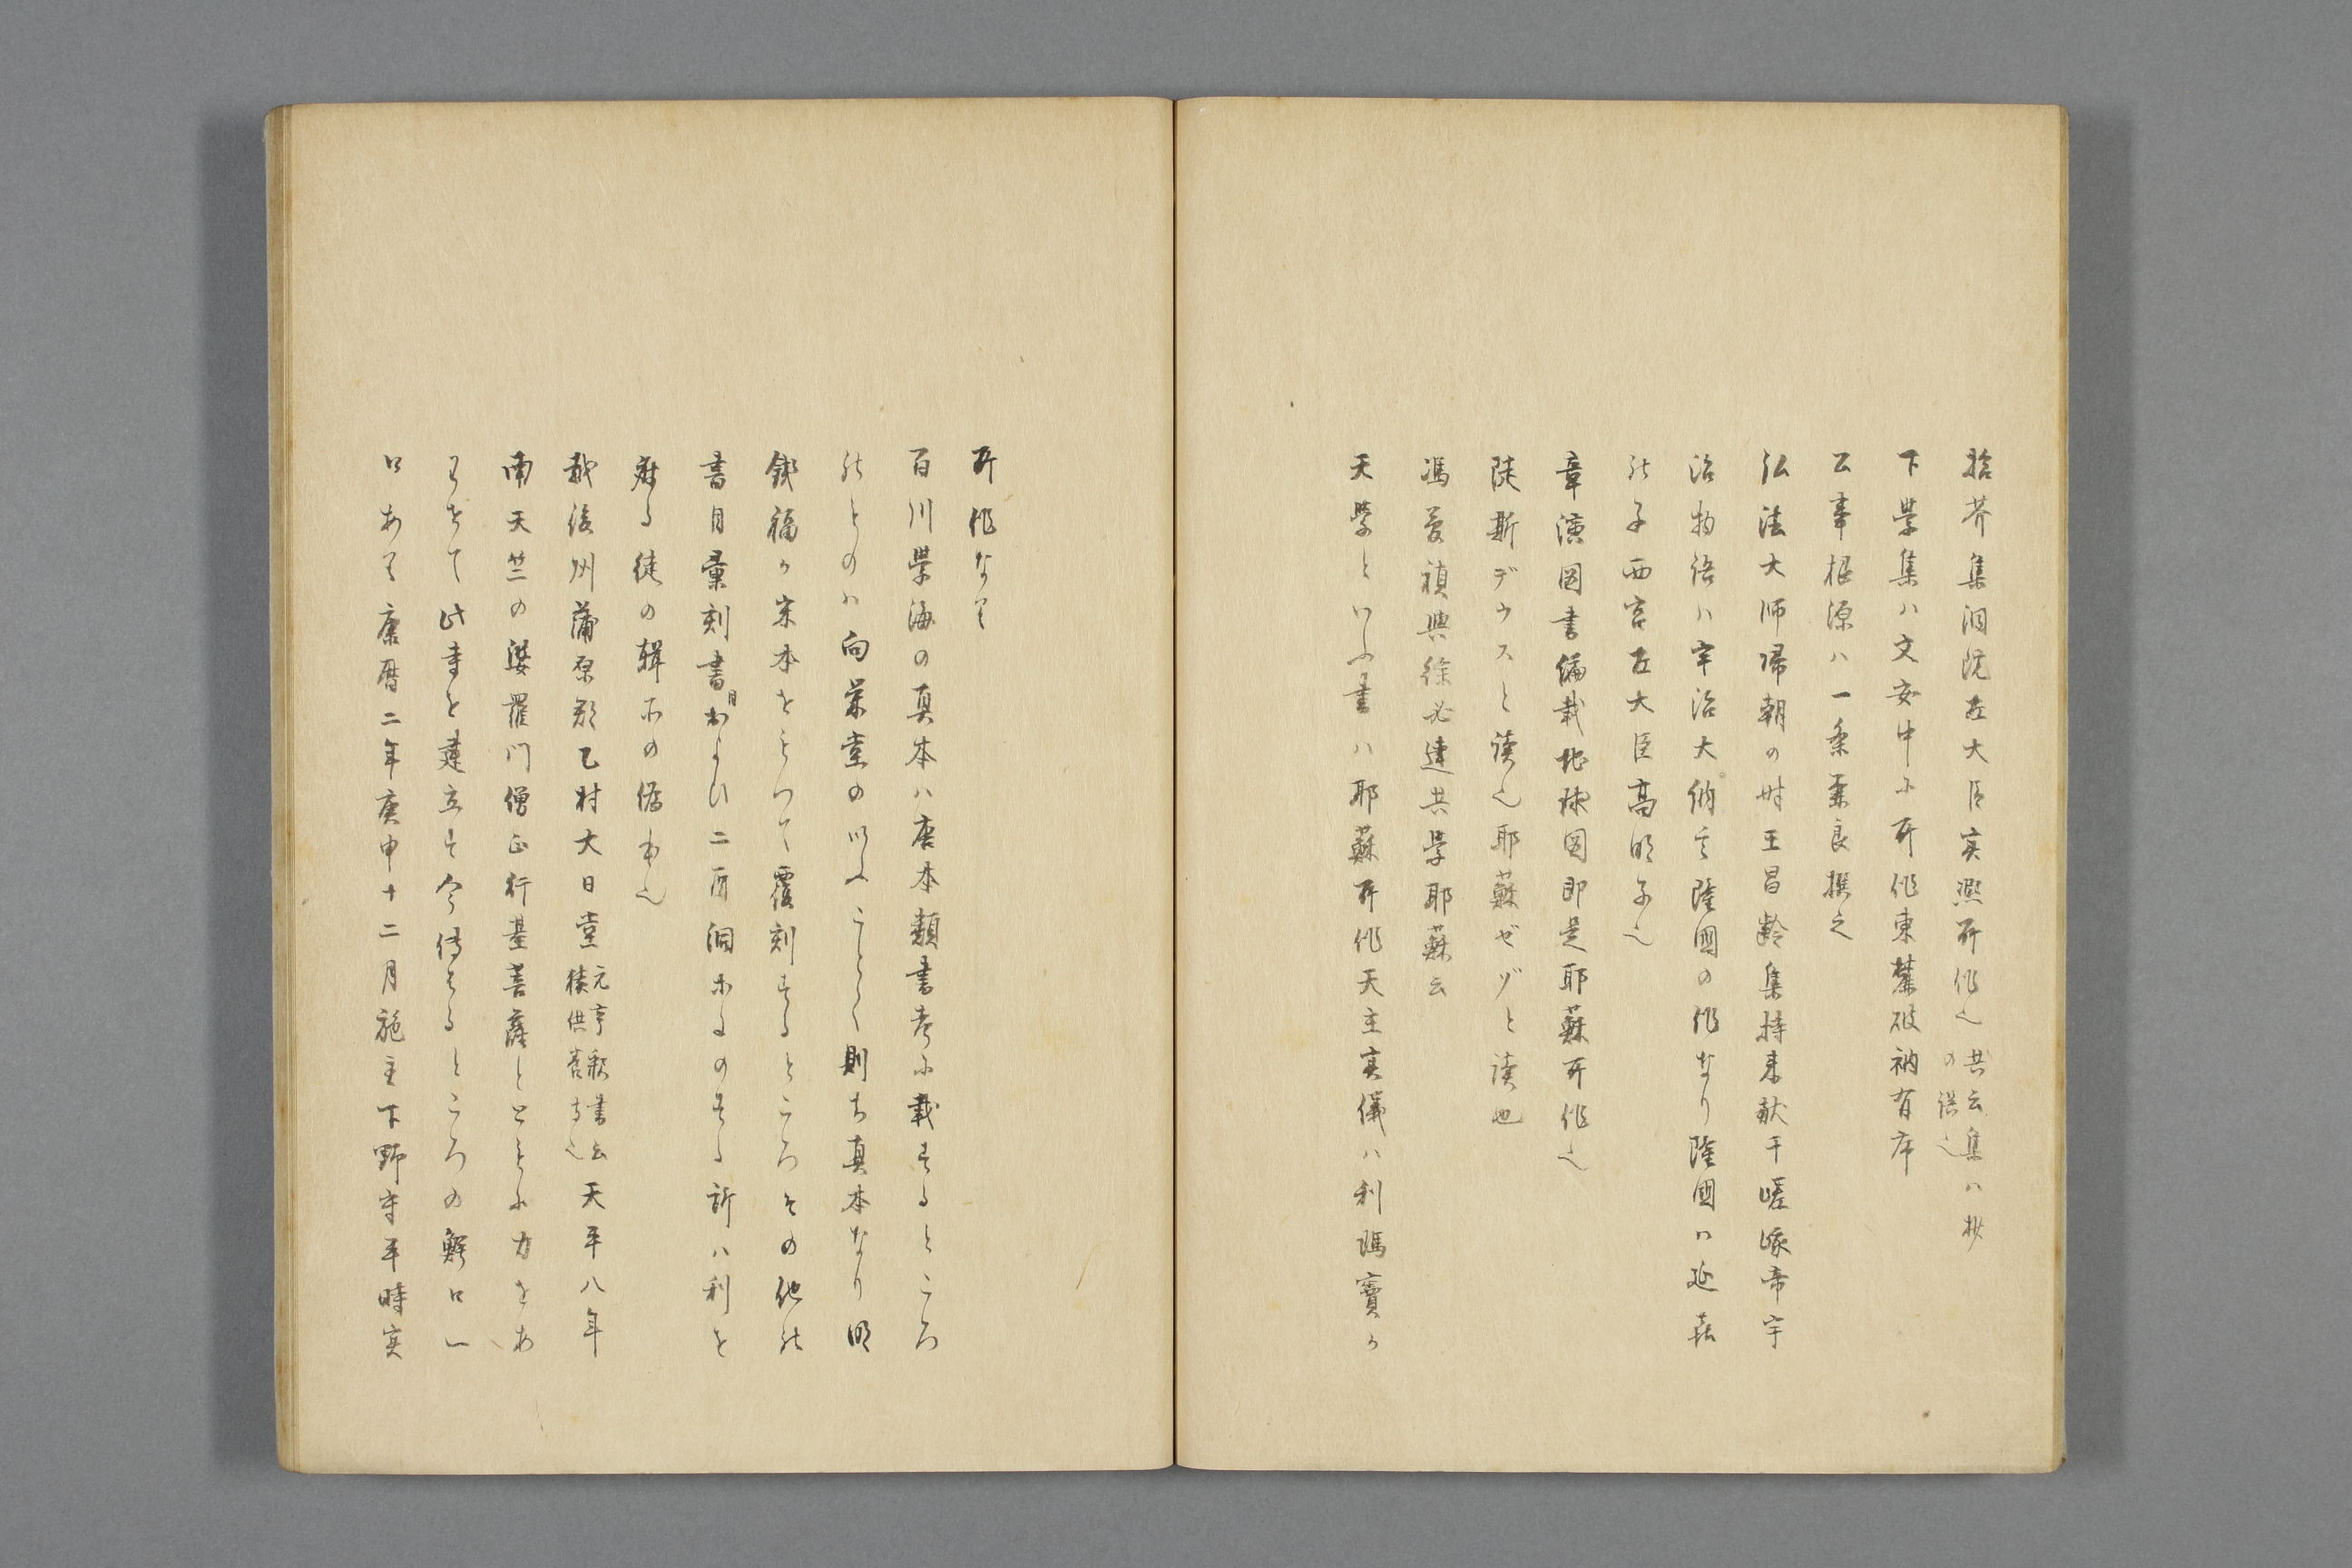 拾芥集洞院左大臣実熈所作也 共云集ハ抄の誤也
下学集ハ文安中に所作東麓破衲有序
公事根源ハ一条兼良撰之
弘法大師帰朝の時王昌齢集持来献于嵯峨帝宇
治物語ハ宇治大納言隆國の作なり隆國ハ延喜
の子西宮左大臣高明子也
章潢図書編載地球図即是耶蘇所作也
陡斯デウスと読也耶蘇ゼヅと読也
馮應禎與徐必達共学耶蘇云
天学といふ書ハ耶蘇所作天主実儀ハ利瑪竇か
所作なり
百川学海の真本ハ唐本類書考に載するところ
のものハ向栄堂のいふことく則ち真本なり明
銭福か宋本をもつて覆刻するところその他の
書目彙刻書目および二酉洞等にのする所ハ利を
射る徒の輯有の偽本也
越後州蒲原郡乙村大日堂 元亨釈書云猿供養寺也 天平八年
南天竺の婆羅門僧正行基菩薩とともに力をあ
わせて此寺を建立す今伝はるところの鰐口一
口あり康暦二年庚申十二月施主下野守平時実